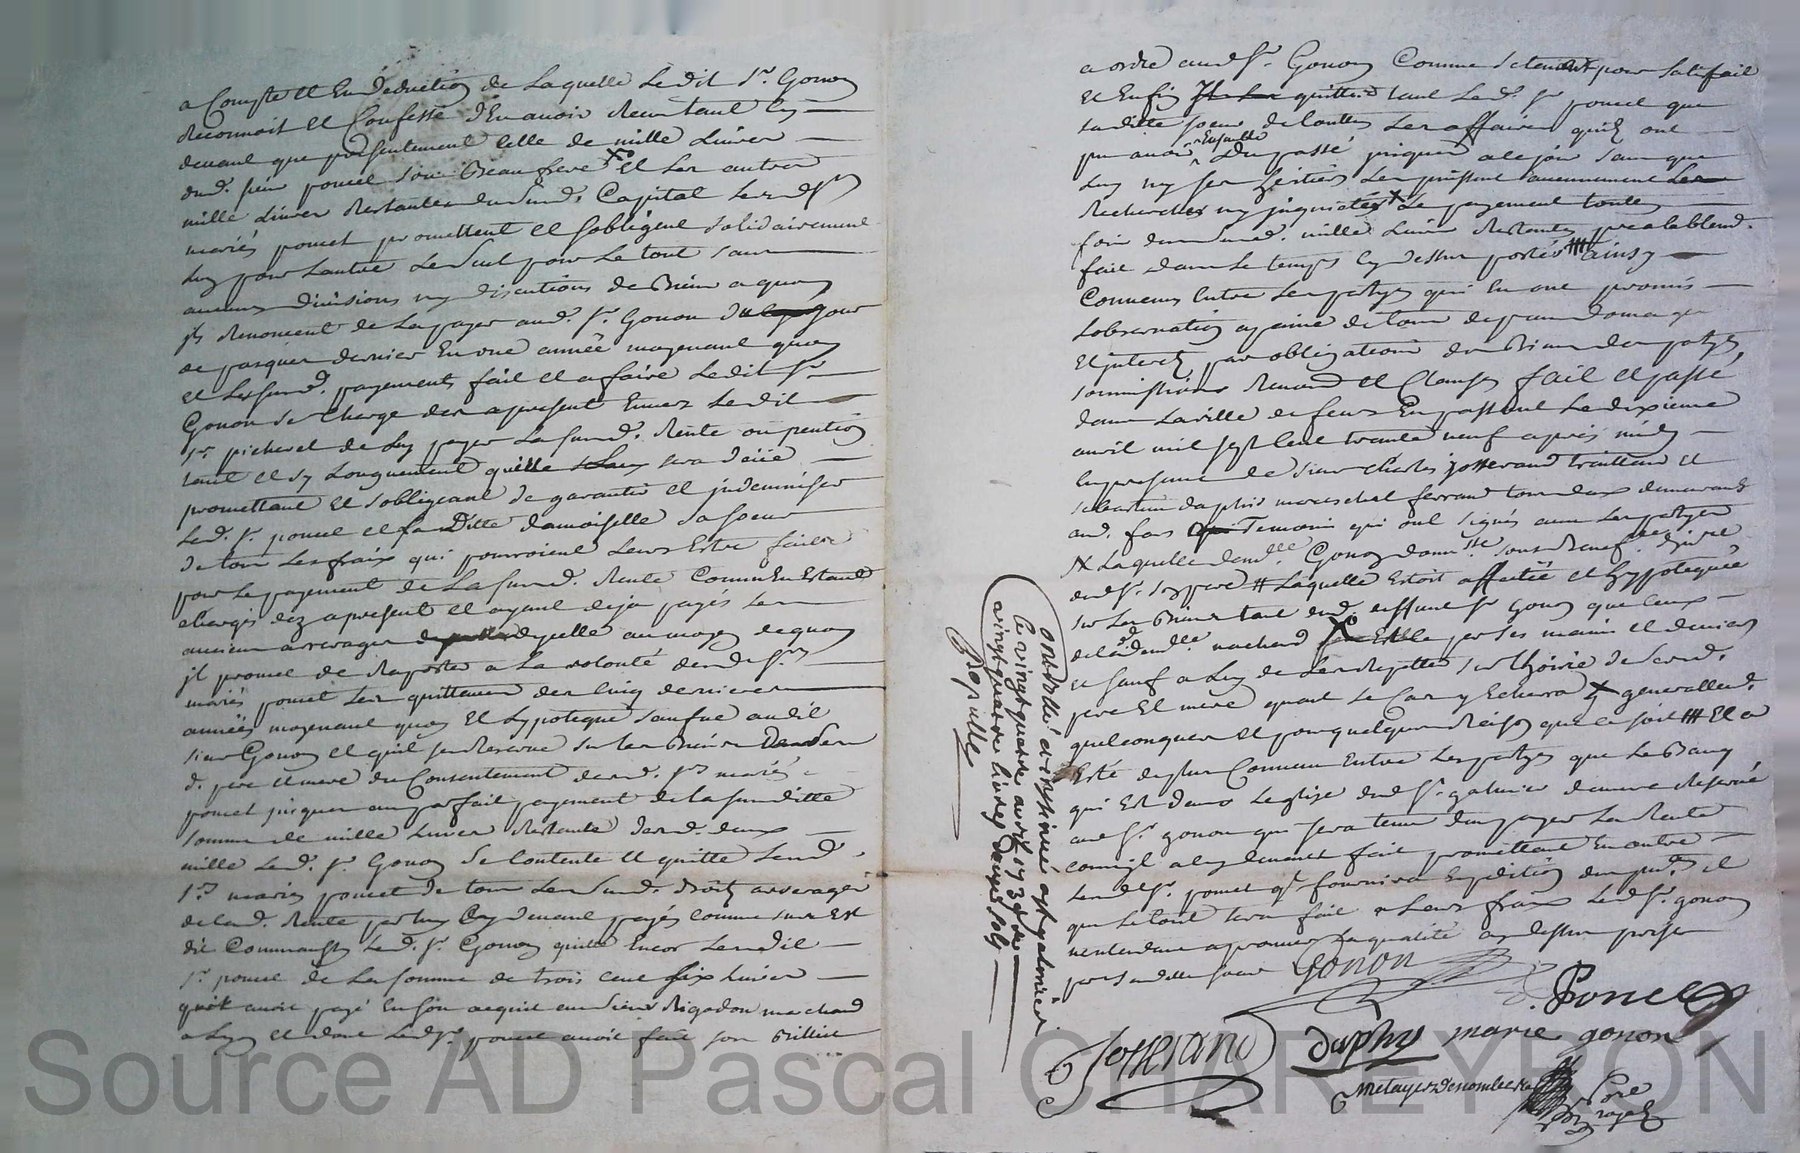 a Compte et En deduction de Laquelle Ledit Sr. Gonon
Reconnoit et Confesse d'En avoir Receu tant cy
devant que presentement celle de mille Livres
dud. Sieur poncet son Beaufrere et Les autres
mille Livres Restantes du Surd. Capital Lesd. Srs
mariés poncet promettent et Sobligent Solidairement
Lun pour Lautre Le Seul pour Le tout sans
aucune divisions ny discutions de Biens a quoy
ils Renoncent de La payer aud. Sr. Gonon du jour
de pasques dernier En une année moyenant quoy
et Lesusd. payements fait et a faire Ledit Sr.
Gonon Se Charge des apresent Envers Ledit
Sr. picherel de Luy payer La Surd. Rente ou pention
tant et sy Longuement quelle sera deüe
promettant et Sobligeant de garantir et indemniser
Led. Sr. poncet et La Ditte damoiselle Sa Soeur
de tous Les fraix qui pourroient Leurs Estre faites
pour Le payement de La Surd. Rente Comme En Estant
chargés dez apresent et ayant deja payés Les
anciens arrerages dycelle au moyen de quoy
il promet de Raporter a La volonté desd. Srs
mariés poncet Les quittances des cinq dernieres
années moyenant quoy Et Lypoteque Saufve audit
Sieur Gonon et quil se Reserve Sur Les Biens
d. pere et mere du Consentement desd. Srs mariés
poncet jusques au parfait payement de la Surditte
somme de mille Livres Restante desd. deux
mille Led. Sr. Gonon Se Contente et quitte Lesd.
Srs mariés poncet de tous Les Surd. droits arrerages
de Lad. Rente par luy Cy devant payés comme sus Est
dit Comm Led. Sr. Gonon quitte Encor Lesdit
Sr. poncet de La Somme de trois cent six Livres
quil avoit payé En Son acquit au Sieur Rigodon marchand
a Lyon et dont Led. Sr. poncet avoit fait son Billiet
a ordre aud. Sr. Gonon Comme Se tenant pour Satisfait
Et Enfin quitte tant Led. Sr poncet que
saditte soeur de touttes Les affaires quils ont
pu avoir Ensemble du passé jusques a ce jour sans que
Luy ny ses heritiers Les puissent aucunement
Rechercher ny inquieter Le payement toutes
fois du Surd. mille Livres Restantes prealablemt.
fait dans Le temps cy dessus portés ainsy
Convenus Entre Les partyes qui En ont promis
Lobservation a peine de tous depens domages
Et interets par obligation de Biens des partyes
soumissions Renond. et Clauses fait et passé
dans La ville de feurs En passant Le dixieme
avril mil sept cent trante neuf apres midy
En presence de Sieur Charles josserand traitteur et
Sebastien daphis mareschal ferrand tous deux demeurants
aud. feurs Temoins qui ont signés avec Les partyes
Laquelle demlle Gonon
Laquelle Estoit affectée et hyppotequée
sur Les Biens tant dud. deffunt Sr Gonon que Ceux
de lad. demlle nachard par ses mains et deniers
Et sauf a Luy de Les Repetter sur Lhoirie de Sesd.
pere Et mere quant Le Cas y Echerra generallemt.
quelconques et pour quelques Raison que ce soit Et a
Esté deplus Convenu Entre Les partyes que Le Banq
qui Est dans Leglise dud. St. galmier demeure Reservé
aud. Sr. gonon qui sera tenu den payer La Rente
comme il a cy devant fait promettant En outre
Lesd. Srs. poncet de fournir Expedition du pnt. et
que Le tout sera fait a Leurs fraix Led. Sr. gonon
par Saditte soeur
Gonon
Poncet
Josserand
daphis
marie gonon
Controllé et insinué a st galmier
Le vingt quatre avril 1739
vingt quatre livres douze sols
Pupulle
Source AD Pascal CHAREYRON